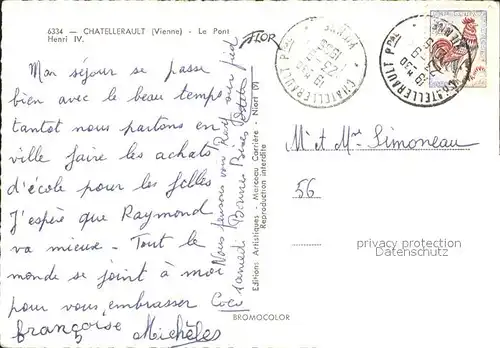 6334 - CHATELLERAULT (Vienne) - Le Pont
Henri IV.
FLOR
Mon séjour se passe
bien avec le beau temps
tantot nous partons en
ville faire les achats
d'école pour les filles
J'espère que Raymond
va mieux. Tout le
monde se joint à moi
pour vous embrasser Coco
françoise Michèles
Nous pensons vous
samedi Bonnes Bises
Editions Artistiques - Marceau Carrière - Niort (9)
Reproduction interdite
BROMOCOLOR
CHATELLERAULT Ppal
VIENNE
CHATELLERAULT Ppal
M et Me Simoneau
56
privacy protection
Datenschutz